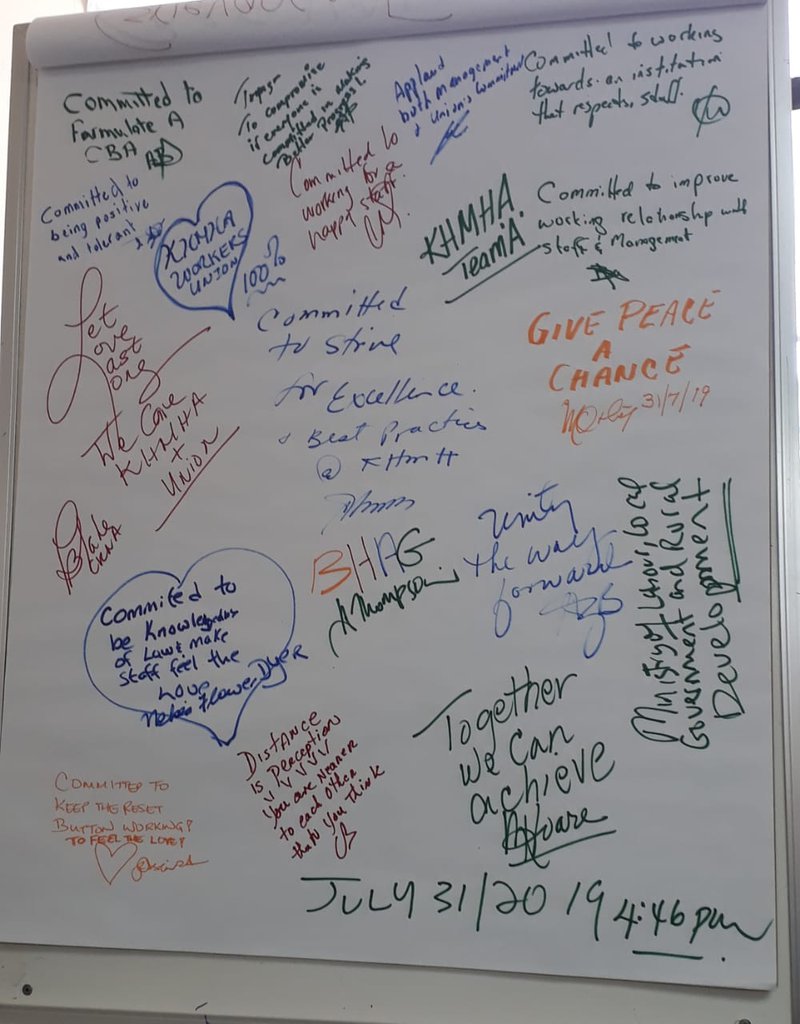 Committed to
Formulate A
CBA
To compromise
if everyone is
committed in making
Better Progress!
Applaud
both management
& Union's Commitment
Committed to working
towards an institution
that respects staff.
Committed to
being positive
and tolerant
WORKERS
UNION
100%
Committed to
working for a
happy staff
KHMHA.
Team A
Committed to improve
working relationship with
staff & Management
Let
Love
Last
Long
We Love
KHMHA
+
UNION
Committed
to Strive
for Excellence.
& Best Practices
@ KHMH
GIVE PEACE
A
CHANCE
31/7/19
Blake
BHAG
A Thompson
Unity
the way
forward
Ministry of Labour, Local
Government and Rural
Development
Commited to
be Knowledgeable
of Laws make
staff feel the
Love
Flowers Dyer
DISTANCE
is Perception
You are Nearer
to each other
than you Think
Together
We Can
achieve
COMMITTED TO
KEEP THE RESET
BUTTON WORKING!
TO FEEL THE LOVE!
JULY 31/2019 4:46 pm.